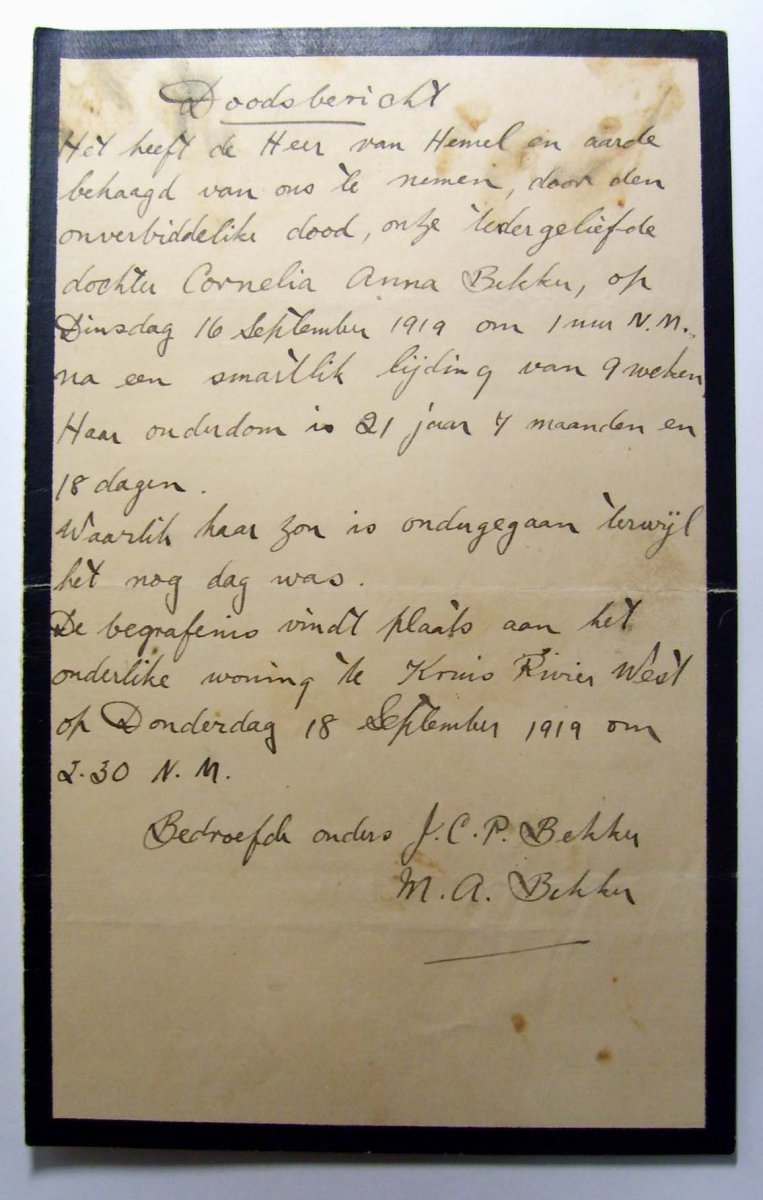 Doodsbericht
Het heeft de Heer van Hemel en aarde
behaagd van ons te nemen, door den
onverbiddelike dood, onze teder geliefde
dochter Cornelia Anna Bekker, op
Dinsdag 16 September 1919 om 1 uur N.M.,
na een smartlik lijding van 9 weken
Haar ouderdom is 21 jaar 7 maanden en
18 dagen.
Waarlik haar zon is ondergegaan terwijl
het nog dag was.
De begrafenis vindt plaats aan het
ouderlike woning te Kruis Rivier West
op Donderdag 18 September 1919 om
2.30 N.M.
Bedroefde ouders J.C.P. Bekker
M.A. Bekker